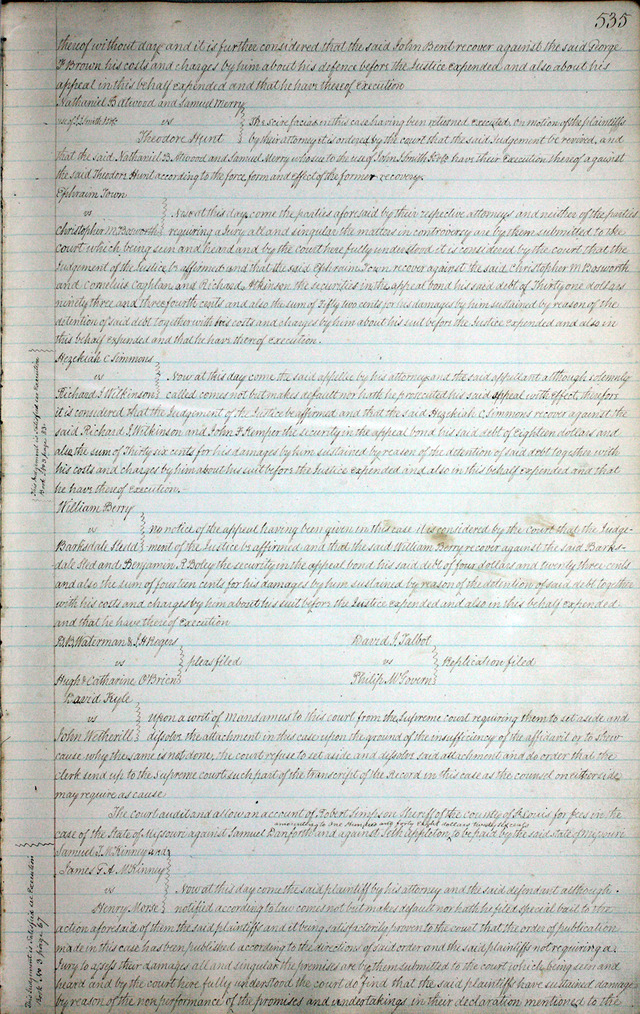 535
thereof without day and it is further considered that the said John Bent recover against the said Dorge
F Brown his costs and charges by him about his defence before the Justice expended and also about his
appeal in this behalf expended and that he have thereof execution
Nathaniel B Atwood and Samuel Merry
use of J Smith
vs The scire facias in this case having been returned executed, on motion of the plaintiffs
Theodore Hunt by their attorney it is ordered by the court that the said Judgement be revived, and
that the said Nathaniel B. Atwood and Samuel Merry who sue to the use of John J Smith have their execution thereof against
the said Theodore Hunt according to the force form and effect of the former recovery.
Ephraim Town
vs Now at this day come the parties aforesaid by their respective attorneys and neither of the parties
Christopher M Bosworth requiring a jury all and singular the matters in controversy are by them submitted to the
court which being seen and heard and by the court here fully understood it is considered by the court that the
Judgement of the Justice be affirmed and that the said Ephraim Town recover against the said Christopher M Bosworth
and Cornelius Caghlan and Richard Atkinson the securities in the appeal bond his said debt of Thirty one dollars
ninety three and three fourth cents and also the sum of Fifty two cents for his damages by him sustained by reason of the
detention of said debt together with his costs and charges by him about his suit before the Justice expended and also in
this behalf expended and that he have thereof execution.
Hezekiah C Simmons
vs Now at this day come the said appellee by his attorney and the said appellant although solemnly
Richard J Wilkinson called comes not but makes default nor hath he prosecuted his said appeal with effect therefore
it is considered that the Judgement of the Justice be affirmed and that the said Hezekiah C Simmons recover against the
said Richard J Wilkinson and John F Hemper the security in the appeal bond his said debt of eighteen dollars and
also the sum of Thirty six cents for his damages by him sustained by reason of the detention of said debt together with
his costs and charges by him about his suit before the Justice expended and also in this behalf expended and that
he have thereof execution.
This Judgment is satisfied see Execution
Book No 3 page
William Berry
vs no notice of the appeal having been given in this case it is considered by the court that the Judge-
Barksdale Sledd ment of the Justice be affirmed and that the said William Berry recover against the said Barks-
dale Sled and Benjamin R Boley the security in the appeal bond his said debt of four dollars and twenty three cents
and also the sum of fourteen cents for his damages by him sustained by reason of the detention of said debt together
with his costs and charges by him about his suit before the Justice expended and also in this behalf expended
and that he have thereof execution
B. B Waterman & J. H Rogers
vs pleas filed
Hugh & Catharine O'Brien
David J Talbot
vs Replication filed
Philip McGovern
David Kyle
vs Upon a writ of Mandamus to this court from the Supreme court requiring them to set aside and
John Wetherill dissolve the attachment in this case upon the ground of the insufficiency of the affidavit or to show
cause why the same is not done, the court refuse to set aside and dissolve said attachment and do order that the
clerk send up to the Supreme court such part of the transcript of the Record in this case as the counsel on either side
may require as cause
The court audit and allow an account of Robert Simpson Sheriff of the county of St Louis for fees in the
case of the State of Missouri against Samuel Danforth and against Seth Appleton, to be paid by the said State of Missouri
amounting to one hundred and forty eight dollars
Samuel J. McKinney and
James G. A. McKinney
vs Now at this day come the said plaintiff by his attorney and the said defendant although
Henry Morse notified according to law comes not but makes default nor hath he filed special bail to the
action aforesaid of them the said plaintiffs and it being satisfactorily proven to the court that the order of publication
made in this case has been published according to the directions of said order and the said plaintiffs not requiring a
Jury to assess their damages all and singular the premises are by them submitted to the court which being seen and
heard and by the court here fully understood the court do find that the said plaintiffs have sustained damage
by reason of the non performance of the promises and undertakings in their declaration mentioned to the
This Judgement is satisfied see Execution
Book No 3 page 67